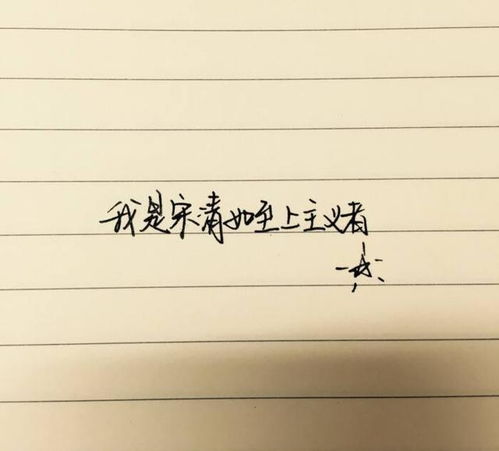 我是宋清如至上主义者